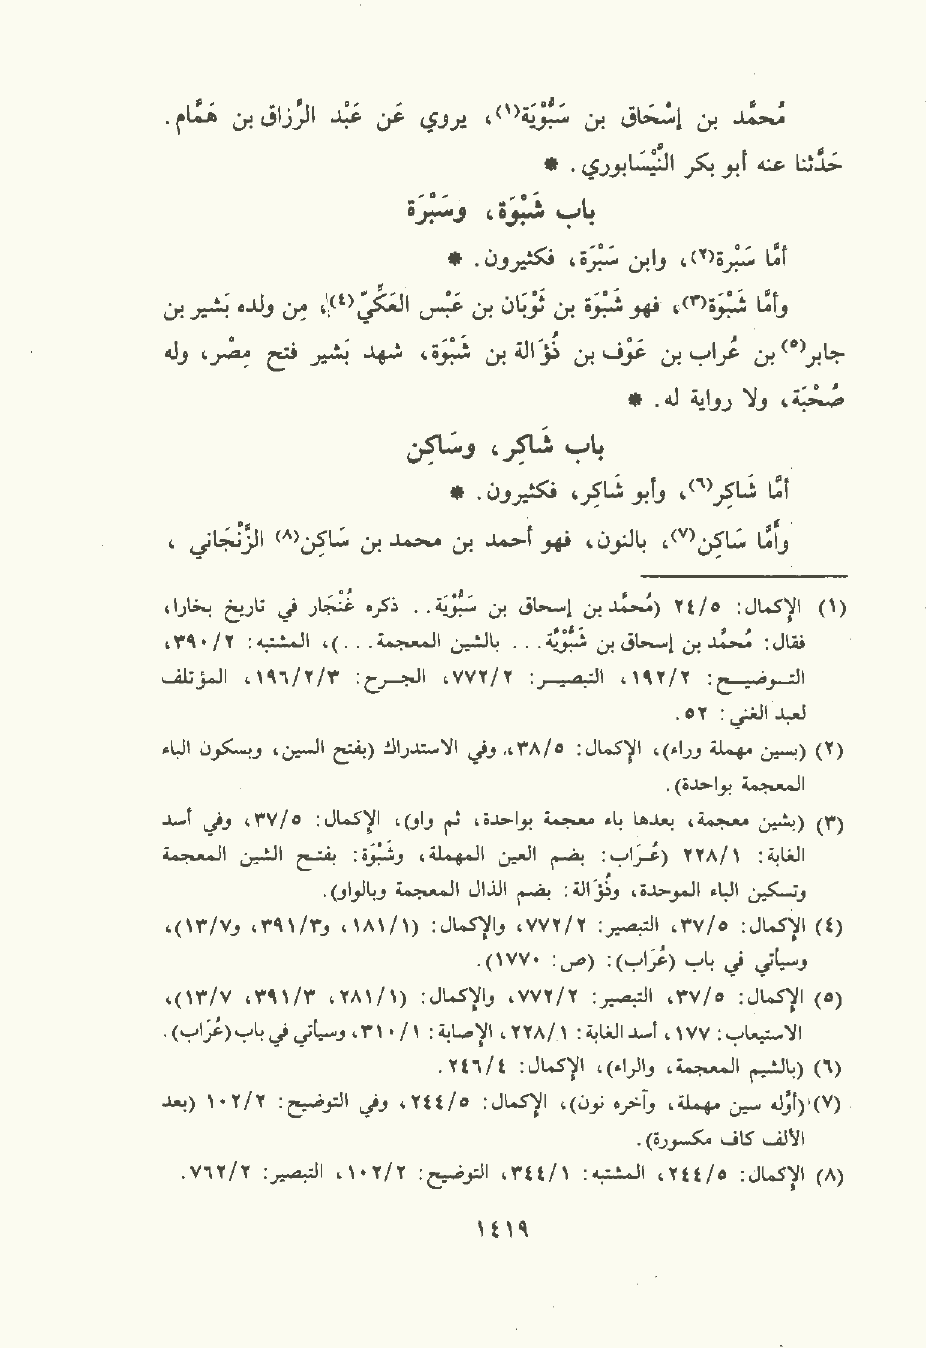 مُحمَّد بن إسْحَاق بن سَبُّوْيَة(١)، يروي عَن عَبْد الرَّزاق بن هَمَّام.
حَدَّثنا عنه أبو بكر النَّيْسَابوري. *
باب شَبْوَة، وسَبْرَة
أمَّا سَبْرة(٢)، وابن سَبْرَة، فكثيرون. *
وأمَّا شَبْوَة(٣)، فهو شَبْوَة بن ثَوْبَان بن عَبْس العَكِّيّ(٤)، من ولده بَشير بن
جابر(٥) بن عُراب بن عَوْف بن ذُؤَالة بن شَبْوَة، شهد بَشير فتح مِصْر، وله
صُحْبَة، ولا رواية له. *
باب شَاكِر، وسَاكِن
أمَّا شَاكِر(٦)، وأبو شَاكِر، فكثيرون. *
وأمَّا سَاكِن(٧)، بالنون، فهو أحمد بن محمد بن سَاكِن(٨) الزَّنْجَاني،
(١) الإكمال: ٢٤/٥ (مُحمَّد بن إسحاق بن سَبُّوْيَة.. ذكره غُنْجَار في تاريخ بخارا،
فقال: مُحمَّد بن إسحاق بن شَبُّوْيَة... بالشين المعجمة...)، المشتبه: ٣٩٠/٢،
التـوضيـح: ١٩٢/٢، التبصيـر: ٧٧٢/٢، الجـرح: ١٩٦/٢/٣، المؤتلف
لعبد الغني: ٥٢.
(٢) (سين مهملة وراء)، الإكمال: ٣٨/٥، وفي الاستدراك (بفتح السين، وبسكون الباء
المعجمة بواحدة).
(٣) (بشين معجمة، بعدها باء معجمة بواحدة، ثم واو)، الإكمال: ٣٧/٥، وفي أسد
الغابة: ٢٢٨/١ (عُـرَاب: بضم العين المهملة، وشَبْوَة: بفتـح الشين المعجمة
وتسكين الباء الموحدة، وذُؤَالة: بضم الذال المعجمة وبالواو).
(٤) الإكمال: ٣٧/٥، التبصير: ٧٧٢/٢، والإكمال: (١٨١/١، و٣٩١/٣، و١٣/٧)،
وسيأتي في باب (عُرَاب): (ص: ١٧٧٠).
(٥) الإكمال: ٣٧/٥، التبصير: ٧٧٢/٢، والإكمال: (٢٨١/١، ٣٩١/٣، ١٣/٧)،
الاستيعاب: ١٧٧، أسد الغابة: ٢٢٨/١، الإصابة: ٣١٠/١، وسيأتي في باب (عُرَاب).
(٦) (بالشيم المعجمة، والراء)، الإكمال: ٢٤٦/٤.
(٧) (أوَّله سين مهملة، وآخره نون)، الإكمال: ٢٤٤/٥، وفي التوضيح: ١٠٢/٢ (بعد
الألف كاف مكسورة).
(٨) الإكمال: ٢٤٤/٥، المشتبه: ٣٤٤/١، التوضيح: ١٠٢/٢، التبصير: ٧٦٢/٢.
١٤١٩